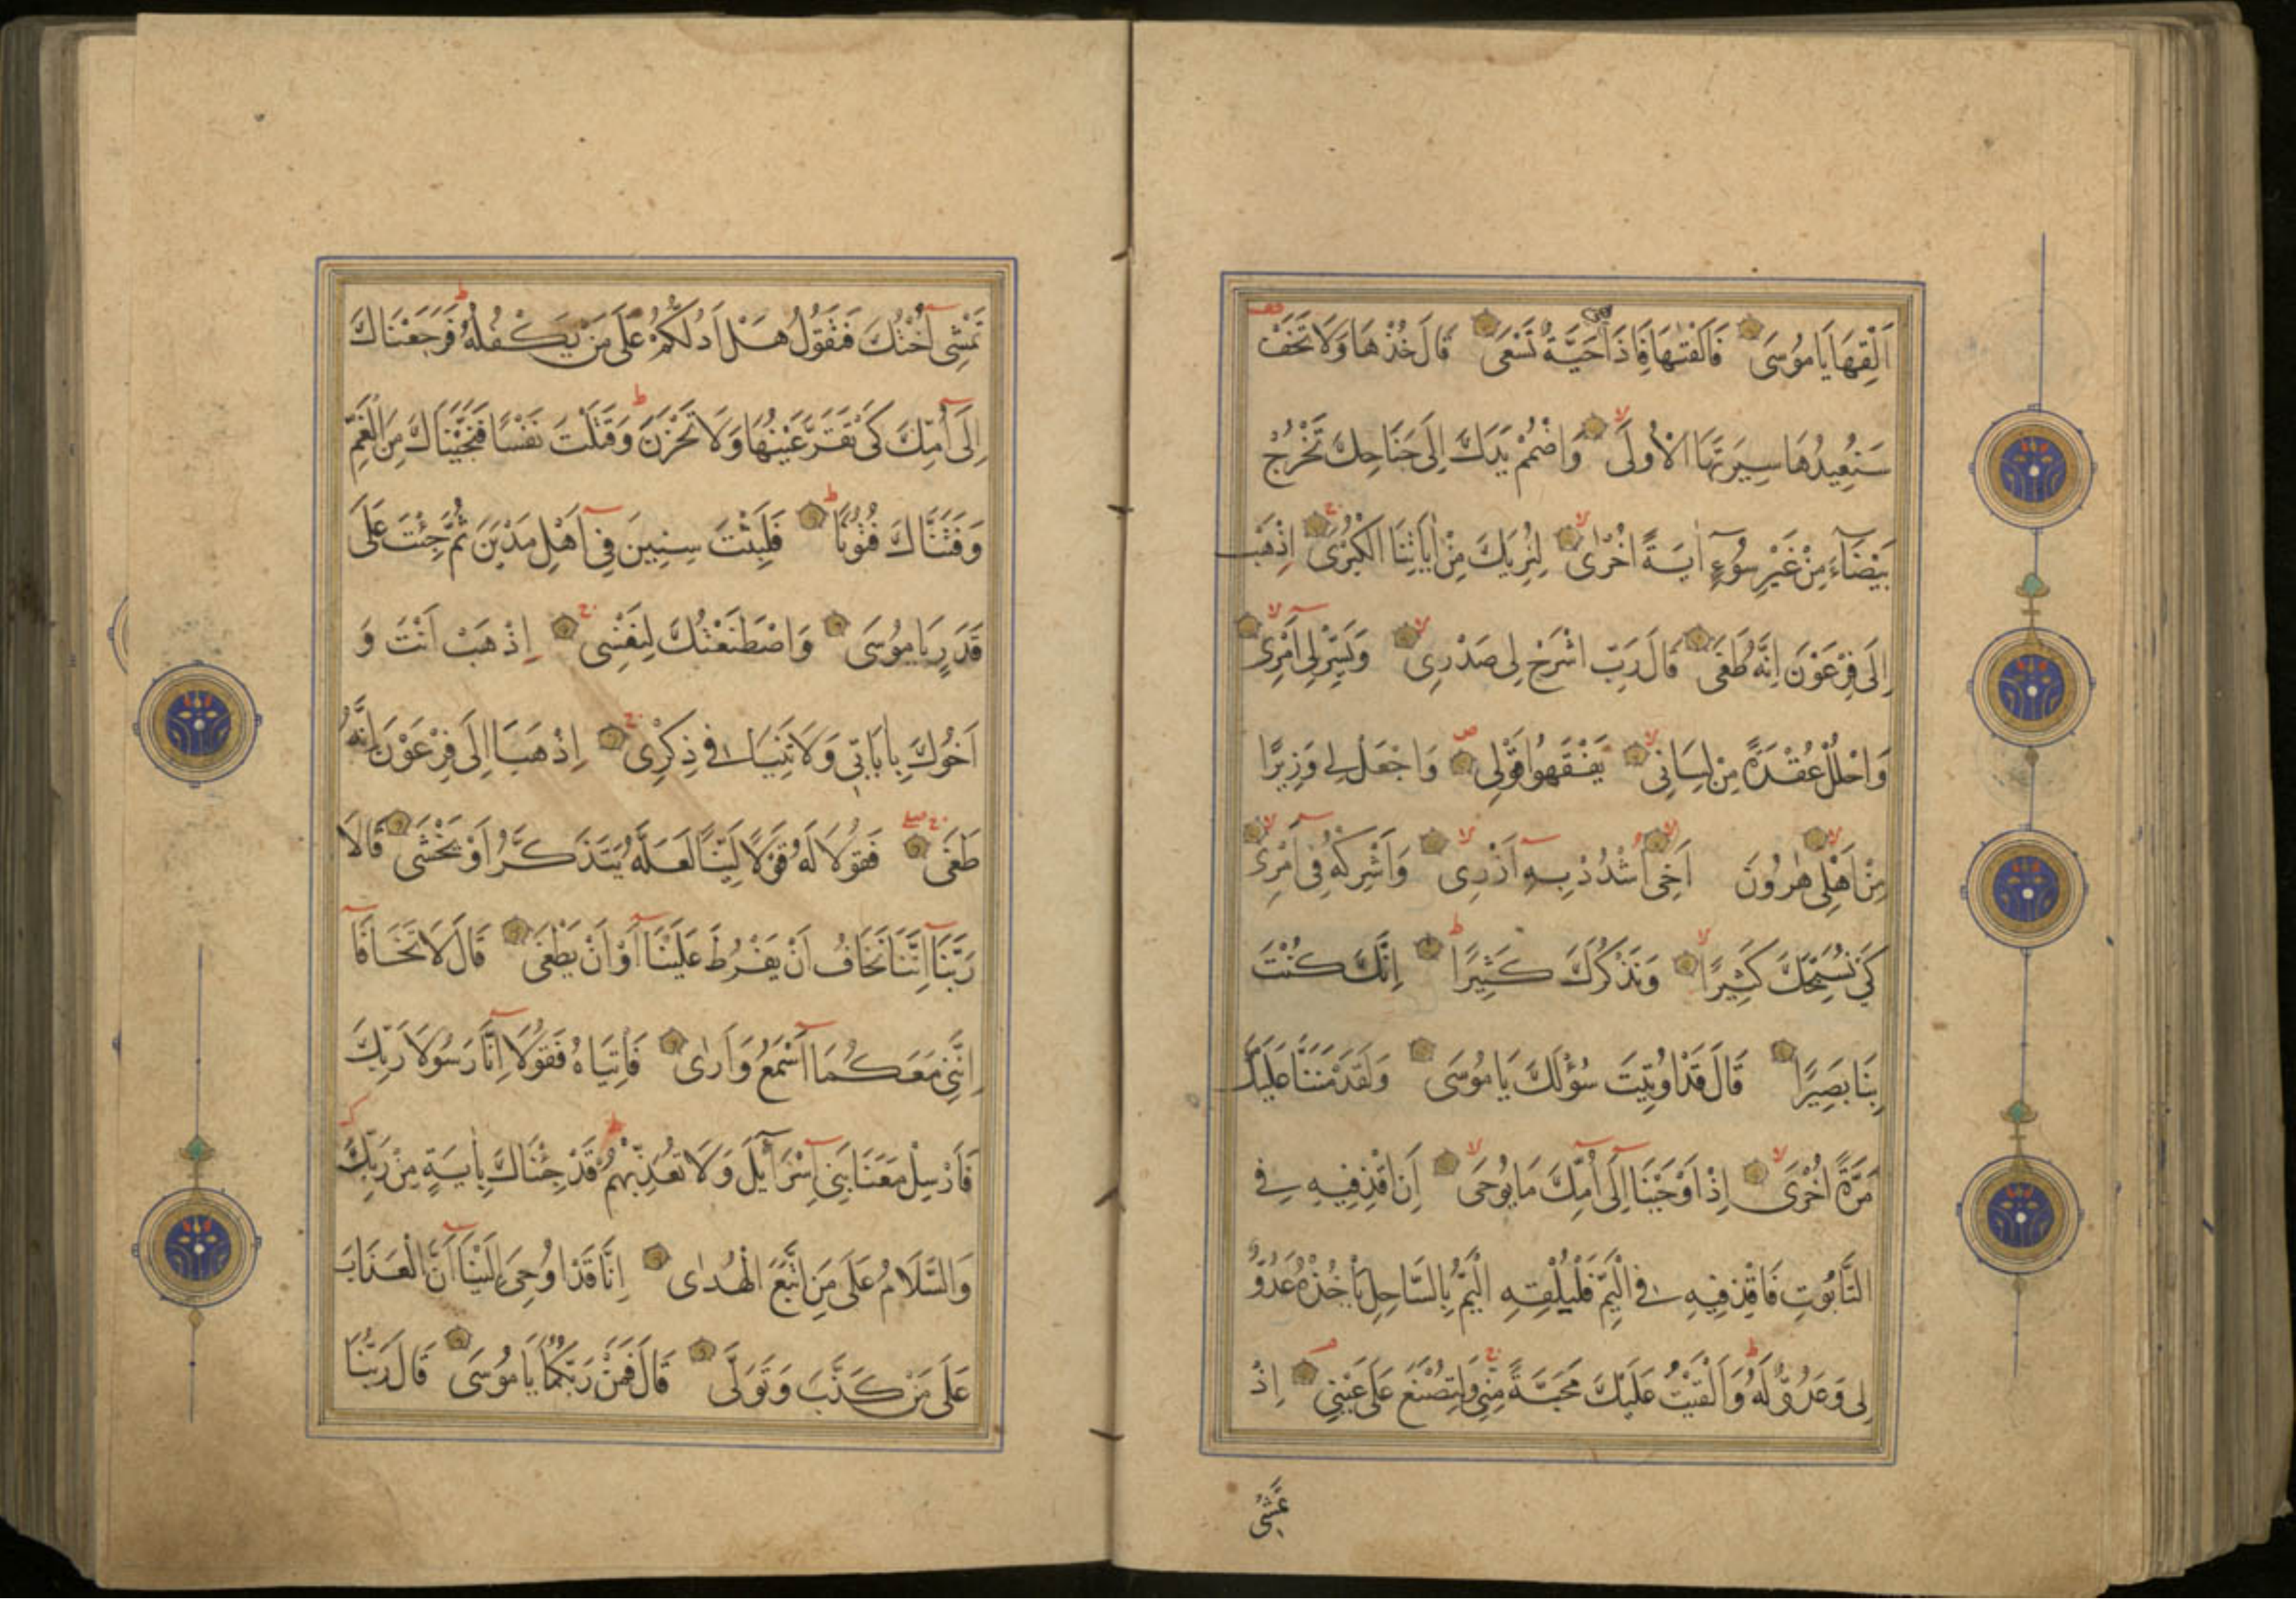 اَلْقِهَا يَا مُوسَى فَاَلْقٰيهَا فَاِذَا حَيَّةٌ تَسْعَى قَالَ خُذْهَا وَلَا تَخَفْ
سَنُعِيدُهَا سِيرَتَهَا الْاُولَى وَاضْمُمْ يَدَكَ اِلَى جَنَاحِكَ تَخْرُجْ
بَيْضَآءَ مِنْ غَيْرِ سُوٓءٍ اٰيَةً اُخْرٰى لِنُرِيَكَ مِنْ اٰيَاتِنَا الْكُبْرٰى اِذْهَبْ
اِلَى فِرْعَوْنَ اِنَّهُ طَغَى قَالَ رَبِّ اشْرَحْ لِى صَدْرِى وَيَسِّرْ لِى اَمْرِى
وَاحْلُلْ عُقْدَةً مِنْ لِسَانِى يَفْقَهُوا قَوْلِى وَاجْعَلْ لِى وَزِيرًا
مِنْ اَهْلِى هٰرُونَ اَخِى اشْدُدْ بِهِ اَزْرِى وَاَشْرِكْهُ فِى اَمْرِى
كَىْ نُسَبِّحَكَ كَثِيرًا وَنَذْكُرَكَ كَثِيرًا اِنَّكَ كُنْتَ
بِنَا بَصِيرًا قَالَ قَدْ اُوتِيتَ سُؤْلَكَ يَا مُوسَى وَلَقَدْ مَنَنَّا عَلَيْكَ
مَرَّةً اُخْرَى اِذْ اَوْحَيْنَا اِلَى اُمِّكَ مَا يُوحَى اَنِ اقْذِفِيهِ فِى
التَّابُوتِ فَاقْذِفِيهِ فِى الْيَمِّ فَلْيُلْقِهِ الْيَمُّ بِالسَّاحِلِ يَأْخُذْهُ عَدُوٌّ
لِى وَعَدُوٌّ لَهُ وَاَلْقَيْتُ عَلَيْكَ مَحَبَّةً مِنِّى وَلِتُصْنَعَ عَلَى عَيْنِى اِذْ
تَمْشِى اُخْتُكَ فَتَقُولُ هَلْ اَدُلُّكُمْ عَلَى مَنْ يَكْفُلُهُ فَرَجَعْنَاكَ
اِلَى اُمِّكَ كَىْ تَقَرَّ عَيْنُهَا وَلَا تَحْزَنَ وَقَتَلْتَ نَفْسًا فَنَجَّيْنَاكَ مِنَ الْغَمِّ
وَفَتَنَّاكَ فُتُونًا فَلَبِثْتَ سِنِينَ فِى اَهْلِ مَدْيَنَ ثُمَّ جِئْتَ عَلَى
قَدَرٍ يَا مُوسَى وَاصْطَنَعْتُكَ لِنَفْسِى اِذْهَبْ اَنْتَ وَ
اَخُوكَ بِاٰيَاتِى وَلَا تَنِيَا فِى ذِكْرِى اِذْهَبَا اِلَى فِرْعَوْنَ اِنَّهُ
طَغَى فَقُولَا لَهُ قَوْلًا لَيِّنًا لَعَلَّهُ يَتَذَكَّرُ اَوْ يَخْشَى قَالَا
رَبَّنَا اِنَّنَا نَخَافُ اَنْ يَفْرُطَ عَلَيْنَا اَوْ اَنْ يَطْغَى قَالَ لَا تَخَافَا
اِنَّنِى مَعَكُمَا اَسْمَعُ وَاَرٰى فَأْتِيَاهُ فَقُولَا اِنَّا رَسُولَا رَبِّكَ
فَاَرْسِلْ مَعَنَا بَنِى اِسْرَآئِلَ وَلَا تُعَذِّبْهُمْ قَدْ جِئْنَاكَ بِاٰيَةٍ مِنْ رَبِّكَ
وَالسَّلَامُ عَلَى مَنِ اتَّبَعَ الْهُدٰى اِنَّا قَدْ اُوحِىَ اِلَيْنَا اَنَّ الْعَذَابَ
عَلَى مَنْ كَذَّبَ وَتَوَلَّى قَالَ فَمَنْ رَبُّكُمَا يَا مُوسَى قَالَ رَبُّنَا